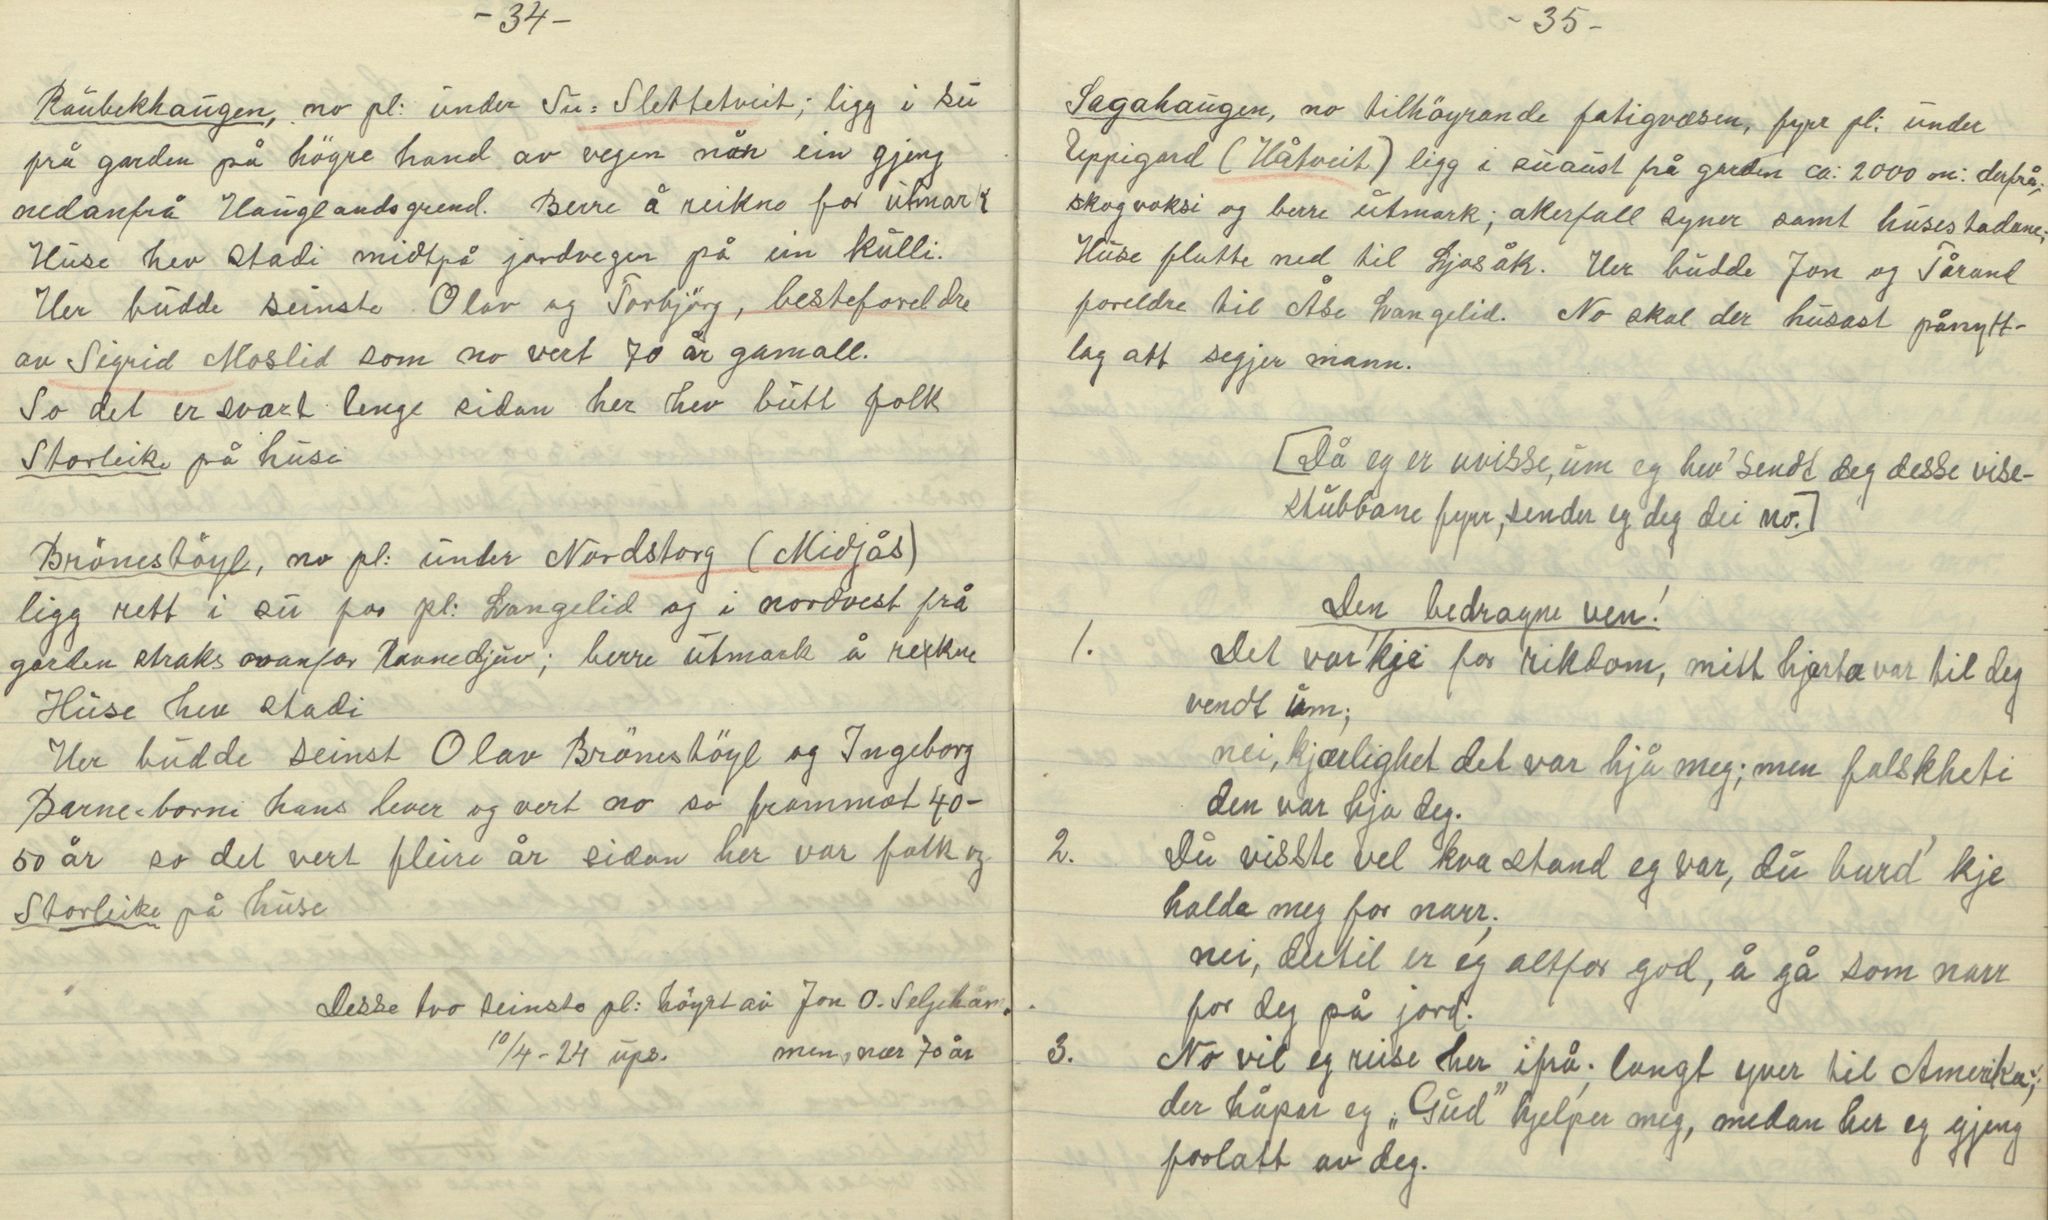 -34-
Raubekhaugen, no pl: under Su-Slettetveit; ligg i su
frå garden på högre hand av vegen når ein gjeng
nedanfrå Hauglandsgrend. Berre å reikne for utmark
Huse hev stadi midtpå jordvegen på ein kulli.
Her budde seinste Olav og Torbjörg, besteforeldre
av Sigrid Moslid som no vert 70 år gamall.
So det er svært lenge sidan her hev butt folk
Storleike på husi
Brönestöyl, no pl: under Nordstorg (Midjås)
ligg rett i su for pl: Langelid og i nordvest frå
garden straks ovanfor Ravnedjuv; berre utmark å rekne
Huse hev stadi
Her budde seinst Olav Brönestöyl og Ingeborg
Barne-borni hans lever og vert no so frammot 40-
50 år so det vert fleire år sidan her var folk og
Storleike på huse
Desse two seinste pl: höyrt av Jon O. Seljeham.
10/4-24 ups. men, nær 70 år
-35-
Sagahaugen, no tilhöyrande fatigvæsen, fyrr pl: under
Uppigard (Håtveit) ligg i suaust frå garden ca: 2000 m: derfrå;
skogvoksi og berre utmark; akerfall syner samt husestadane;
Huse flutte ned til Ljosåk. Her budde Jon og Tårand
foreldre til Åse Langelid. No skal der husast pånytt-
lag att segjer mann.
[Då eg er uvisse, um eg hev' sendt deg desse vise-
stubbane fyrr, sender eg deg dei no.]
Den bedragne ven!
1. Det var'kje for rikdom, mitt hjarta var til deg
vendt um;
nei, kjærlighet det var hjå meg; men falskheti
den var hja deg.
2. Du visste vel kva stand eg var, du burd' kje
halda meg for narr;
nei, dertil er eg altfor god, å gå som narr
for deg på jord.
3. No vil eg reise her ifrå; langt yver til Amerika;
der håpar eg „Gud" hjelper meg, medan her eg gjeng
forlatt av deg.